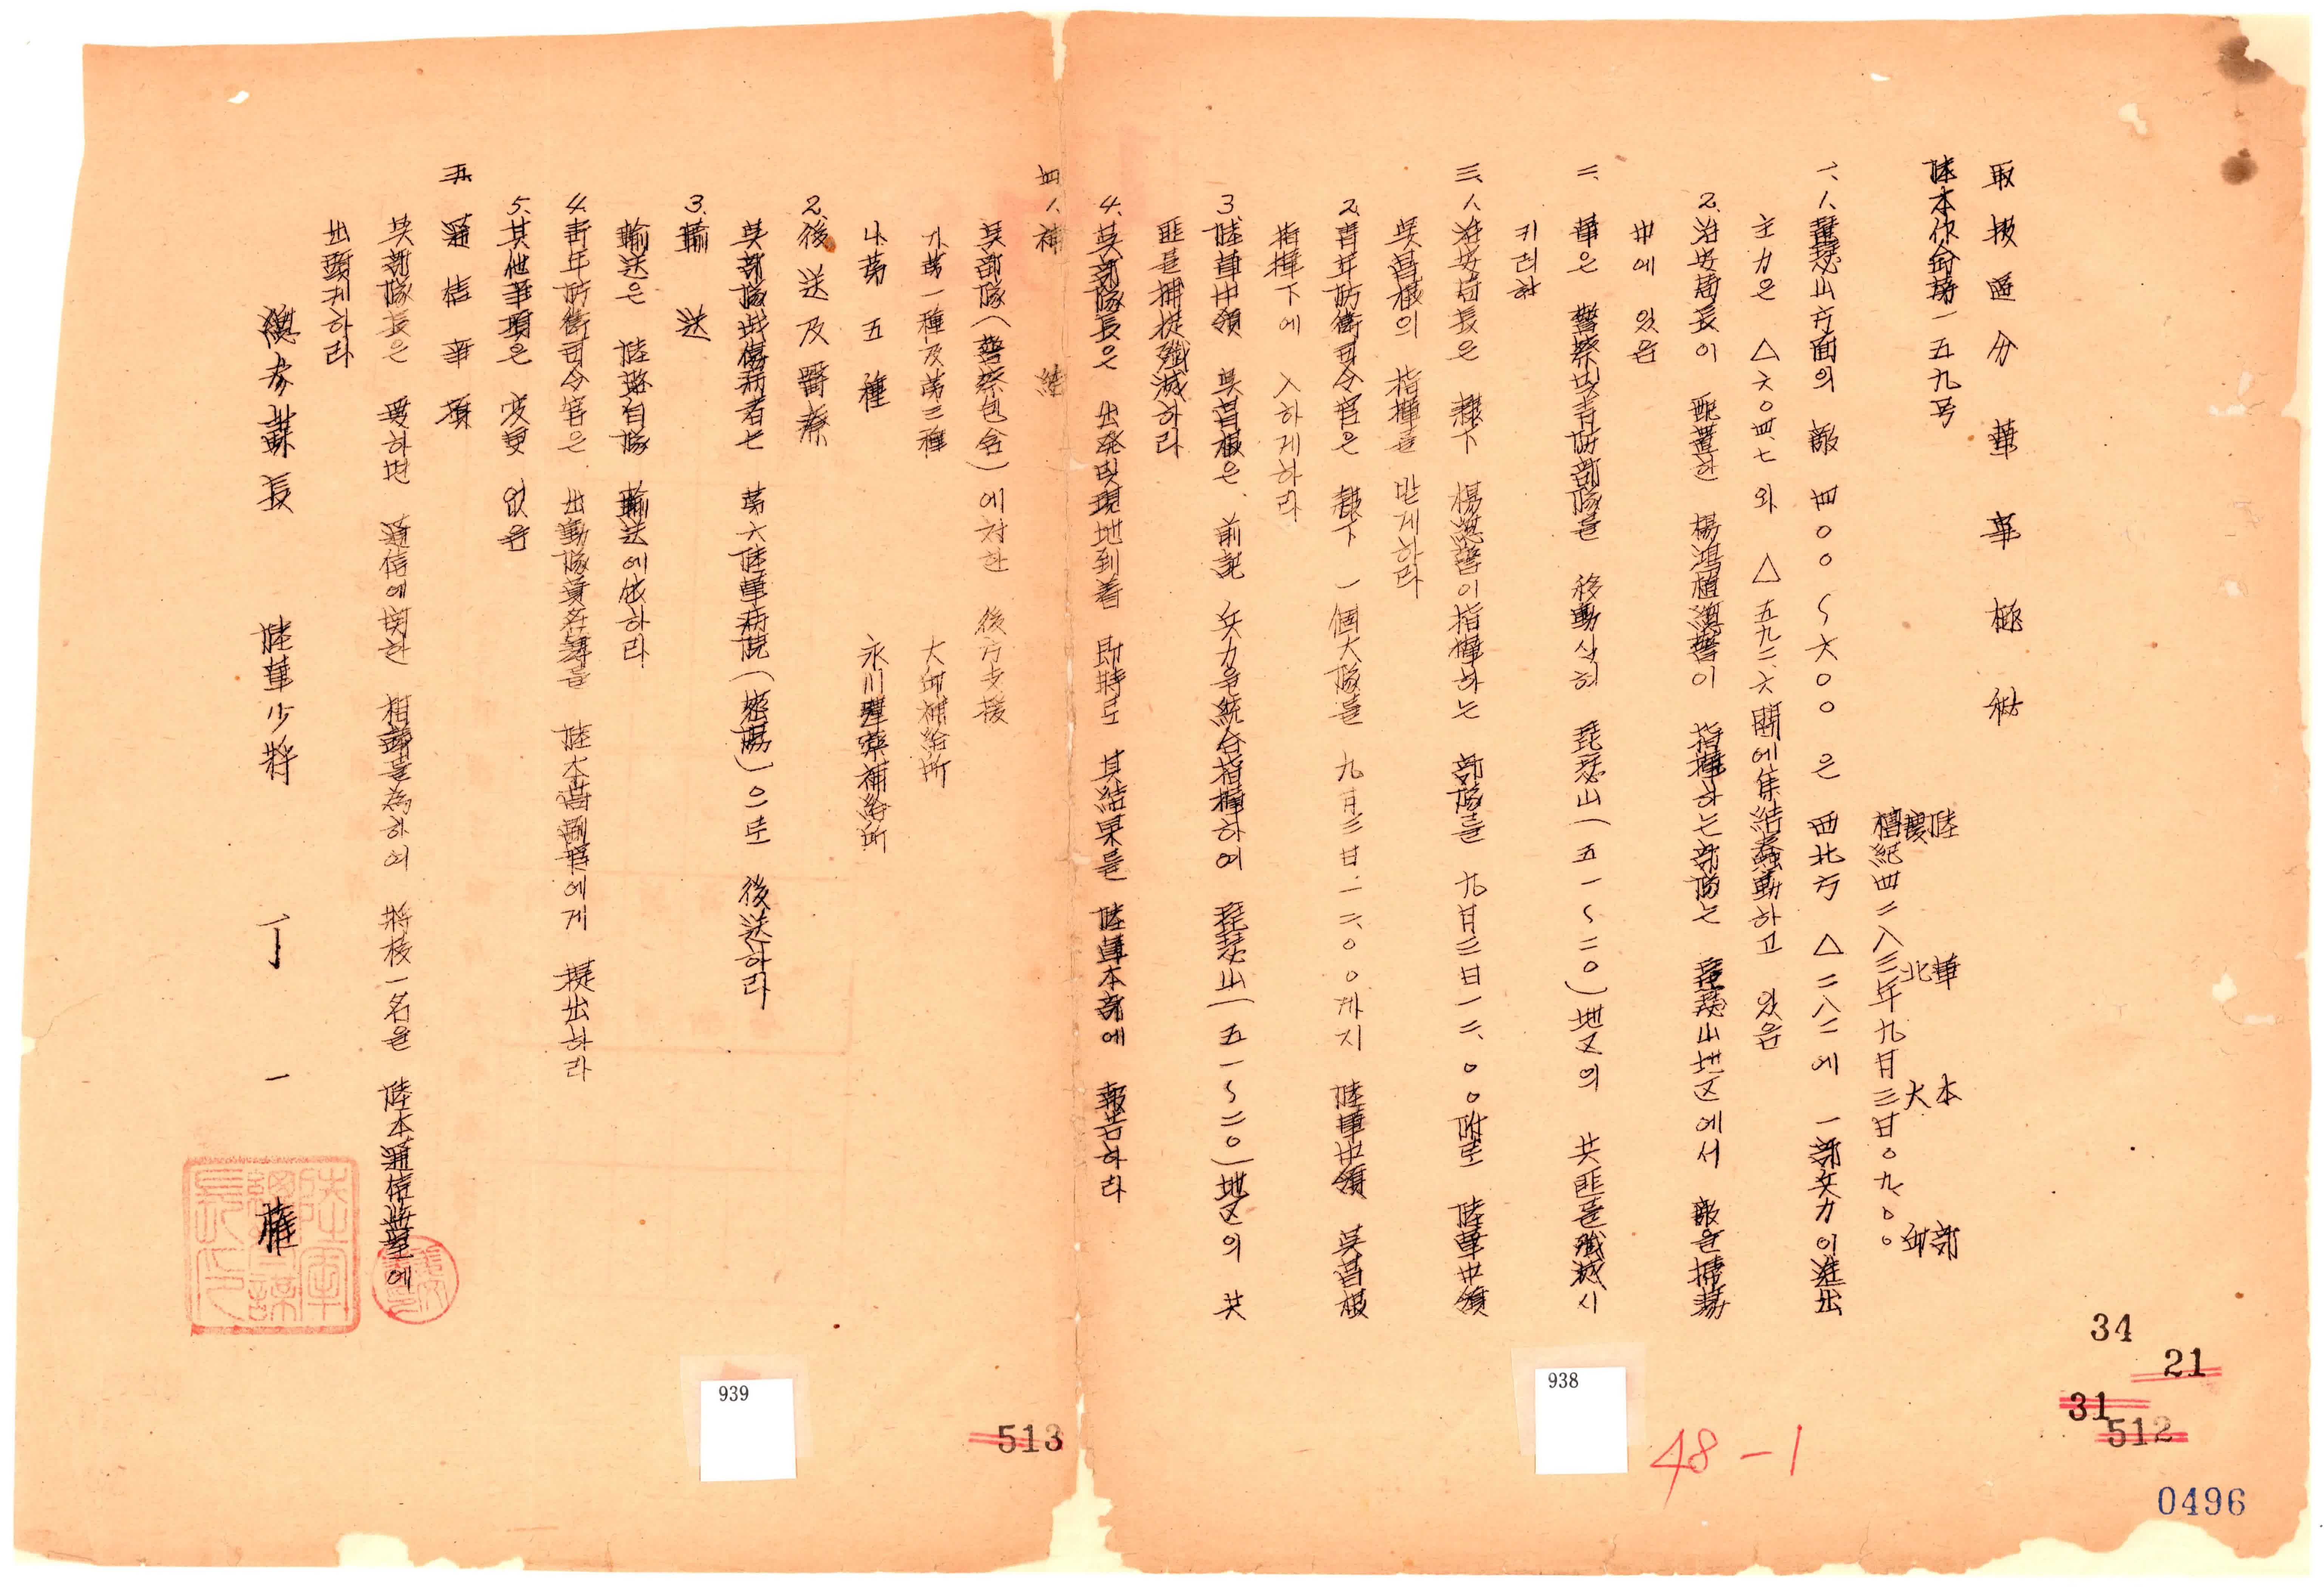 取扱區分 軍事極秘
陸本作命第一五九号
陸軍本部
慶北大邱
檀紀四二八三年九月三日〇九、〇〇
一、1. 琵瑟山方面의 敵 四〇〇~六〇〇은 西北方 △二八二에 一部兵力이進出
主力은 △六〇四.七와 △五九二.六間에集結蠢動하고 있음
2. 治安局長이 配置한 楊鴻植總警이 指揮하는部隊는 琵瑟山地区에서 敵을掃蕩
中에 있음
二、軍은 警察및靑防部隊를 移動식혀 琵瑟山(五一~二〇)地区의 共匪를殲滅시
키려함
三、1. 治安局長은 隷下 楊總警이指揮하는 部隊를 九月三日一二、〇〇附로 陸軍中領
吳昌根의 指揮를 받게하라
2. 靑年防衛司令官은 隷下 一個大隊를 九月三日.一二、〇〇까지 陸軍中領 吳昌根
指揮下에 入하게하라
3. 陸軍中領 吳昌根은 前記 兵力을統合指揮하여 琵瑟山(五一~二〇)地区의 共
匪를捕捉殲滅하라
4. 吳部隊長은 出発및現地到着 即時로 其結果를 陸軍本部에 報告하라
四、1. 補 給
吳部隊(警察包含)에 対한 後方支援
가. 第一種及第三種 大邱補給所
나. 第五種 永川彈藥補給所
2. 後送及醫療
吳部隊戰傷病者는 第六陸軍病院( )으로 後送하라
3. 輸 送
輸送은 陸路自隊 輸送에依하라
4. 靑年防衛司令官은 出動隊員名簿를 陸本 에게 提出하라
5. 其他事項은 変更 없음
五、通信事項
吳部隊長은 要하면 通信에関한 相議를為하여 將校一名을 陸本通信監室에
出頭케하라
總參謀長 陸軍少將 丁一權
陸軍總參謀長印
939
938
513
48-1
34
21
31
512
0496